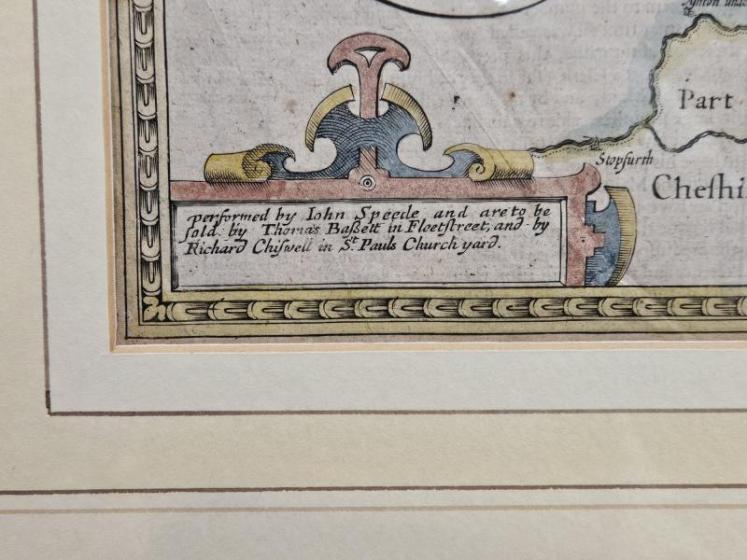 Part
Stopfurth
Cheſhi
performed by Iohn Speede and are to be
ſold by Thomas Baſsett in Fleetſtreet, and by
Richard Chiſwell in St. Pauls Church yard.